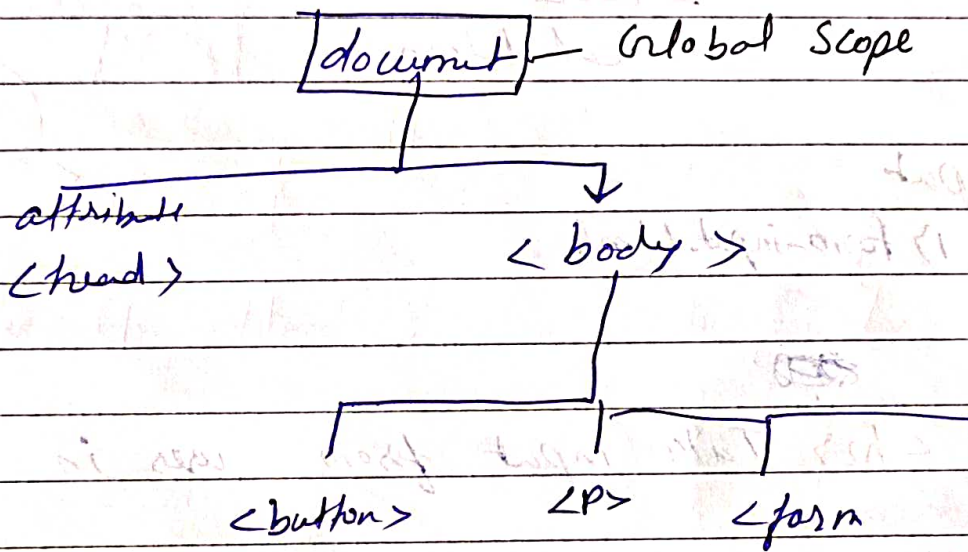 document — Global Scope
attribute
<head>
<body>
<button> <P> <form